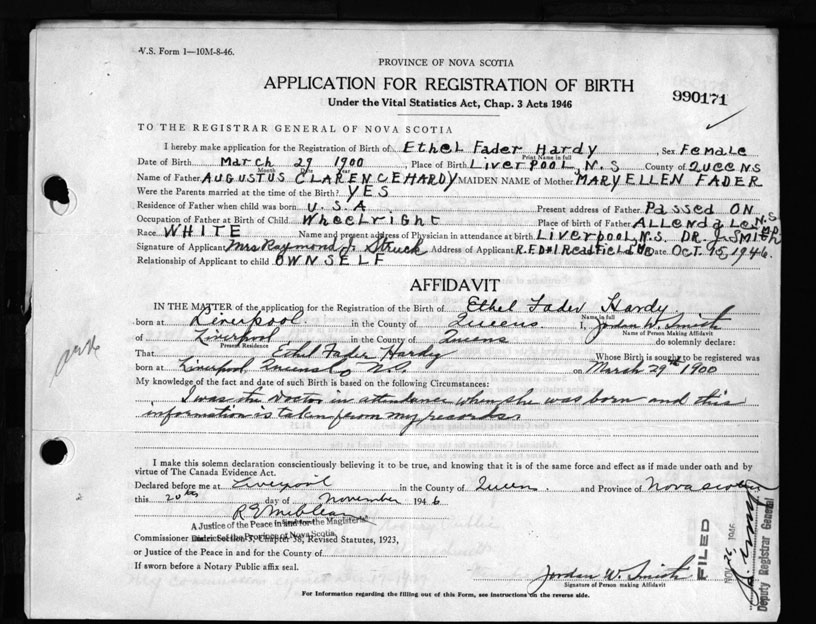 V.S. Form 1—10M-8-46.
PROVINCE OF NOVA SCOTIA
APPLICATION FOR REGISTRATION OF BIRTH
990171
Under the Vital Statistics Act, Chap. 3 Acts 1946
TO THE REGISTRAR GENERAL OF NOVA SCOTIA
I hereby make application for the Registration of Birth of EthEL Fader Hardy, Sex FemaLe
Print Name in full
Date of Birth March 29 1900, Place of Birth LIVerPooL, N.S County of QUEENS
Month Date Year
Name of Father AUGUSTUS CLARENCE HARDY MAIDEN NAME of Mother MARY ELLEN FADER
Were the Parents married at the time of the Birth? YES
Residence of Father when child was born U.S.A Present address of Father Passed ON
Occupation of Father at Birth of Child Wheelright Place of birth of Father ALLENdaLe N.S
Race WHITE Name and present address of Physician in attendance at birth LIVerPooL, N.S. DR. J. SMITH M.D.
Signature of Applicant Mrs. Raymond J. Struck Address of Applicant R.F.D#1 Readfield Date Oct. 15, 1946.
Relationship of Applicant to child OWNSELF
AFFIDAVIT
IN THE MATTER of the application for the Registration of the Birth of Ethel Fader Hardy
Name in full
born at Liverpool in the County of Queens. I, Jordan W. Smith
Name of Person Making Affidavit
of Liverpool in the County of Queens do solemnly declare:
Present Residence
That Ethel Fader Hardy Whose Birth is sought to be registered was
born at Liverpool, Queens Co N.S. on March 29th 1900
My knowledge of the fact and date of such Birth is based on the following Circumstances:
I was the Doctor in attendance when she was born and this
information is taken from my records.
I make this solemn declaration conscientiously believing it to be true, and knowing that it is of the same force and effect as if made under oath and by
virtue of The Canada Evidence Act.
Declared before me at Liverpool in the County of Queens. and Province of Nova Scotia
this 20th day of November 1946
A Justice of the Peace in and for the Magisterial
Commissioner Section 3, Chapter 38, Revised Statutes, 1923,
District of the Province of Nova Scotia
or Justice of the Peace in and for the County of
If sworn before a Notary Public affix seal.
Jordan W. Smith
Signature of Person making Affidavit
For Information regarding the filling out of this Form, see instructions on the reverse side.
FILED
Nov 26 1946
Deputy Registrar General